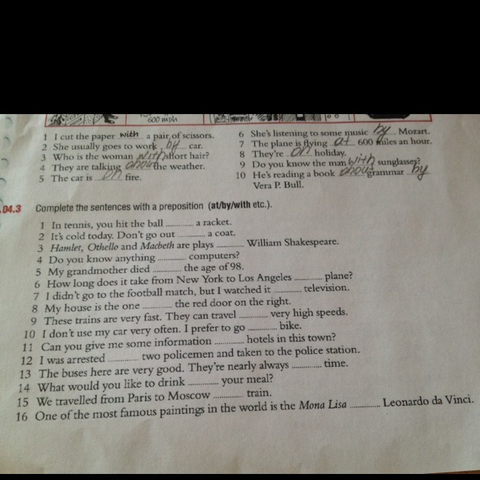 600 mph
1 I cut the paper with a pair of scissors.
2 She usually goes to work by car.
3 Who is the woman with short hair?
4 They are talking about the weather.
5 The car is on fire.
6 She's listening to some music by Mozart.
7 The plane is flying at 600 miles an hour.
8 They're on holiday.
9 Do you know the man with sunglasses?
10 He's reading a book about grammar by
Vera P. Bull.
04.3 Complete the sentences with a preposition (at/by/with etc.).
1 In tennis, you hit the ball ........ a racket.
2 It's cold today. Don't go out ........ a coat.
3 Hamlet, Othello and Macbeth are plays ........ William Shakespeare.
4 Do you know anything ........ computers?
5 My grandmother died ........ the age of 98.
6 How long does it take from New York to Los Angeles ........ plane?
7 I didn't go to the football match, but I watched it ........ television.
8 My house is the one ........ the red door on the right.
9 These trains are very fast. They can travel ........ very high speeds.
10 I don't use my car very often. I prefer to go ........ bike.
11 Can you give me some information ........ hotels in this town?
12 I was arrested ........ two policemen and taken to the police station.
13 The buses here are very good. They're nearly always ........ time.
14 What would you like to drink ........ your meal?
15 We travelled from Paris to Moscow ........ train.
16 One of the most famous paintings in the world is the Mona Lisa ........ Leonardo da Vinci.